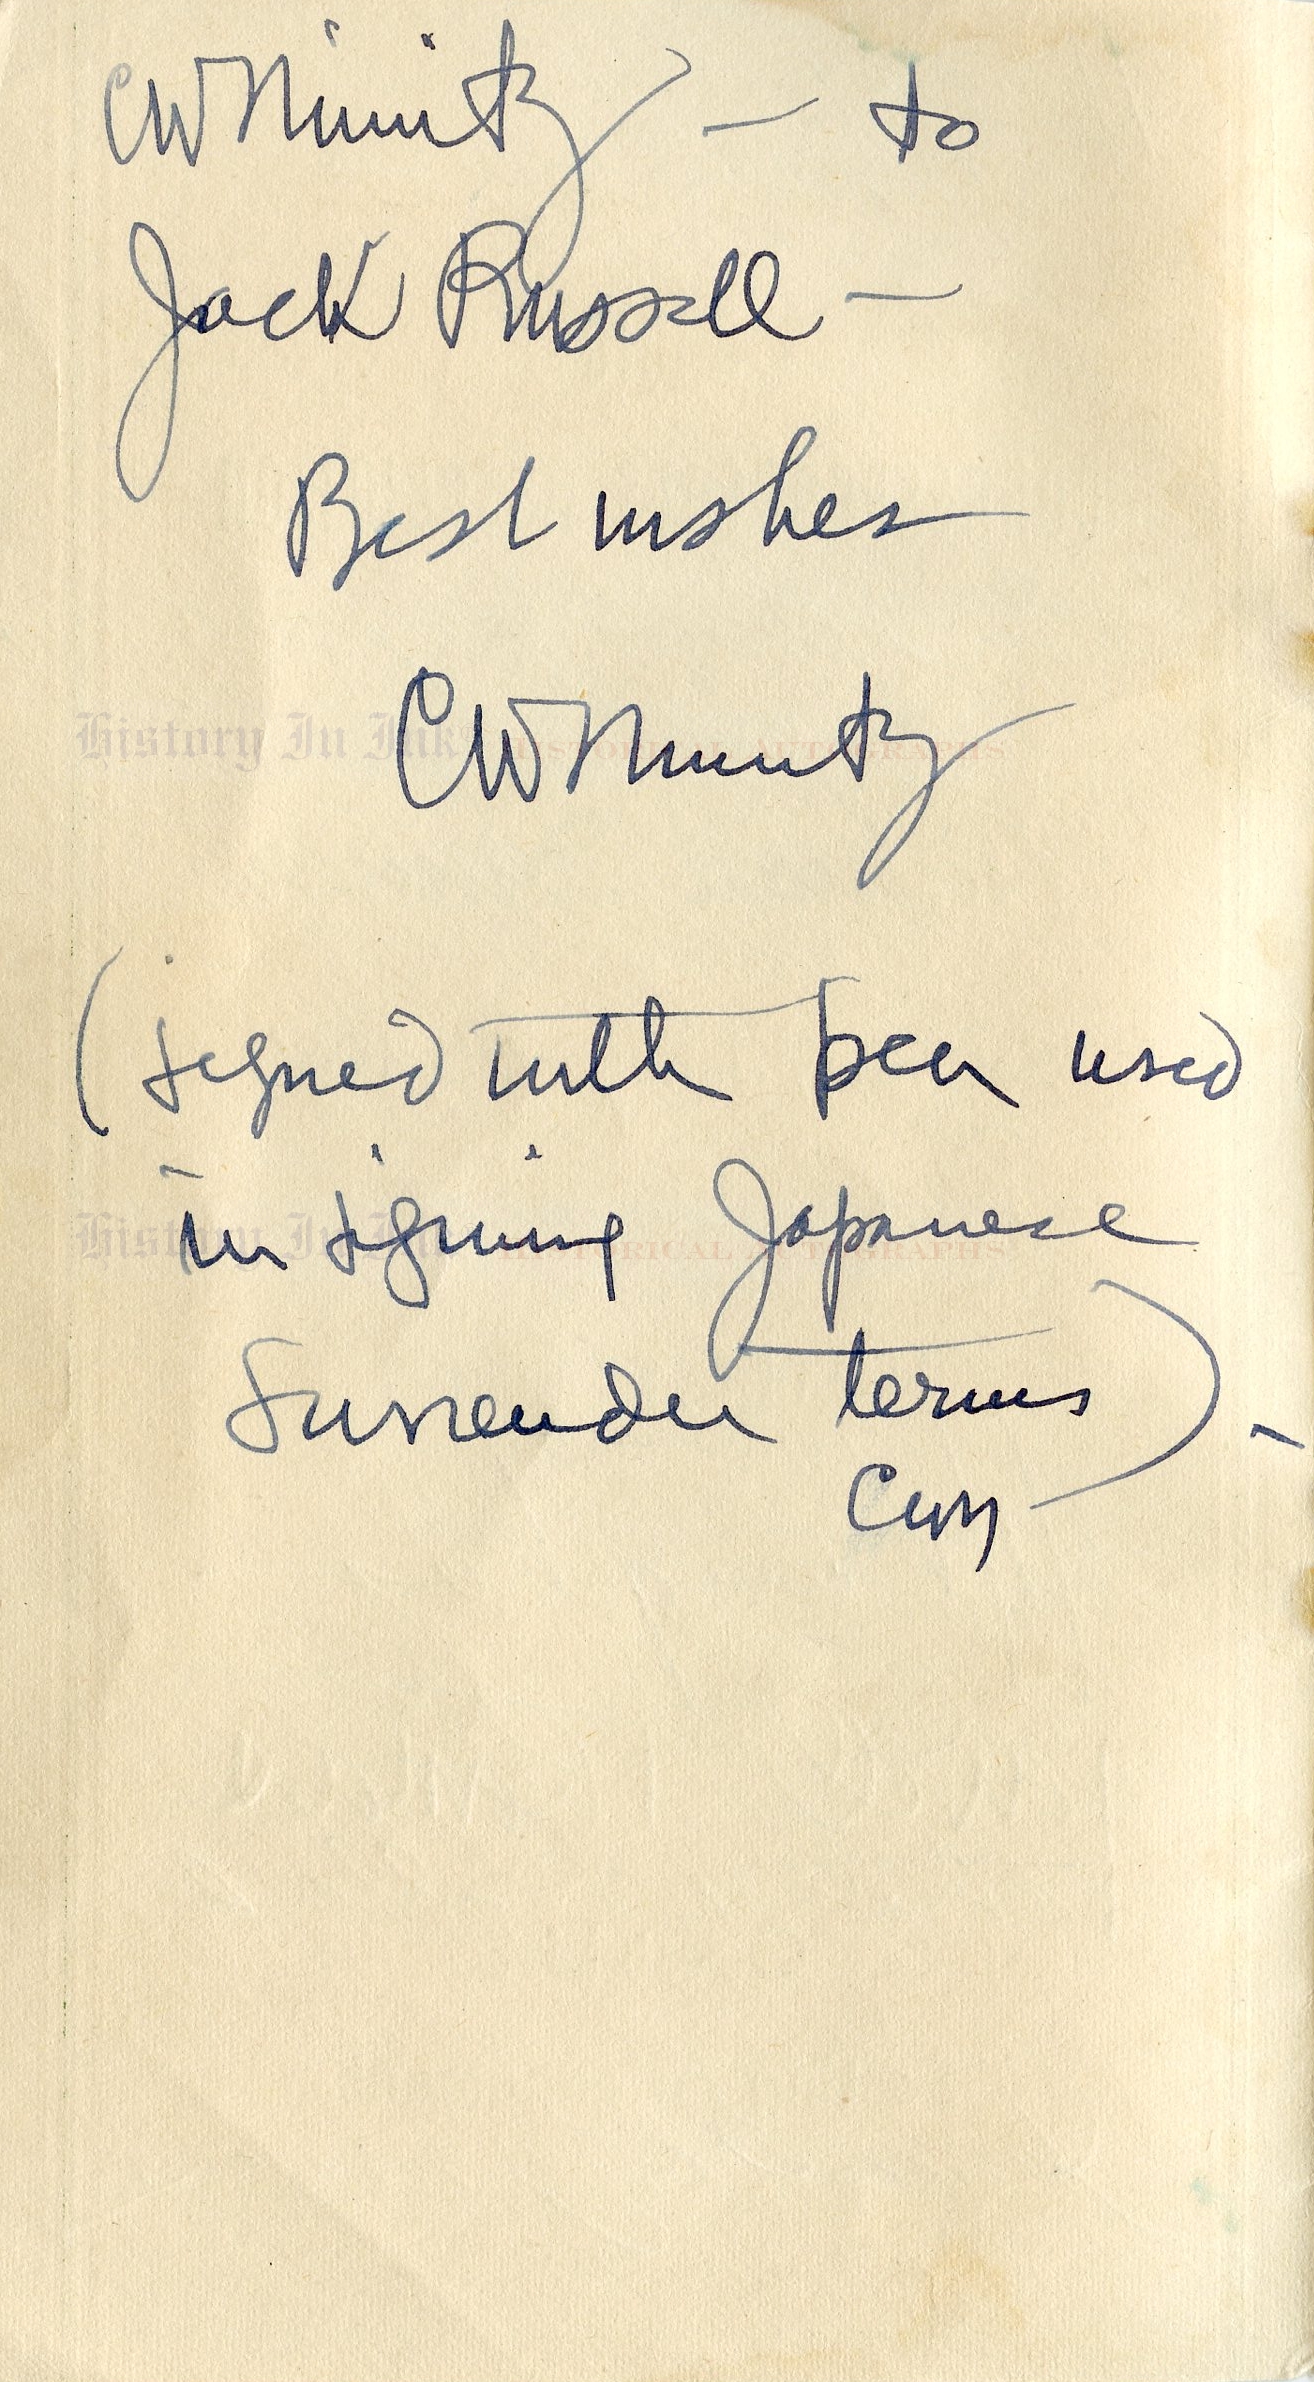 CWNimitz – to
Jack Russell –
Best wishes
CWNimitz
History In Ink HISTORICAL AUTOGRAPHS
(signed with pen used
in signing Japanese
History In Ink HISTORICAL AUTOGRAPHS
Surrender terms) –
CWN